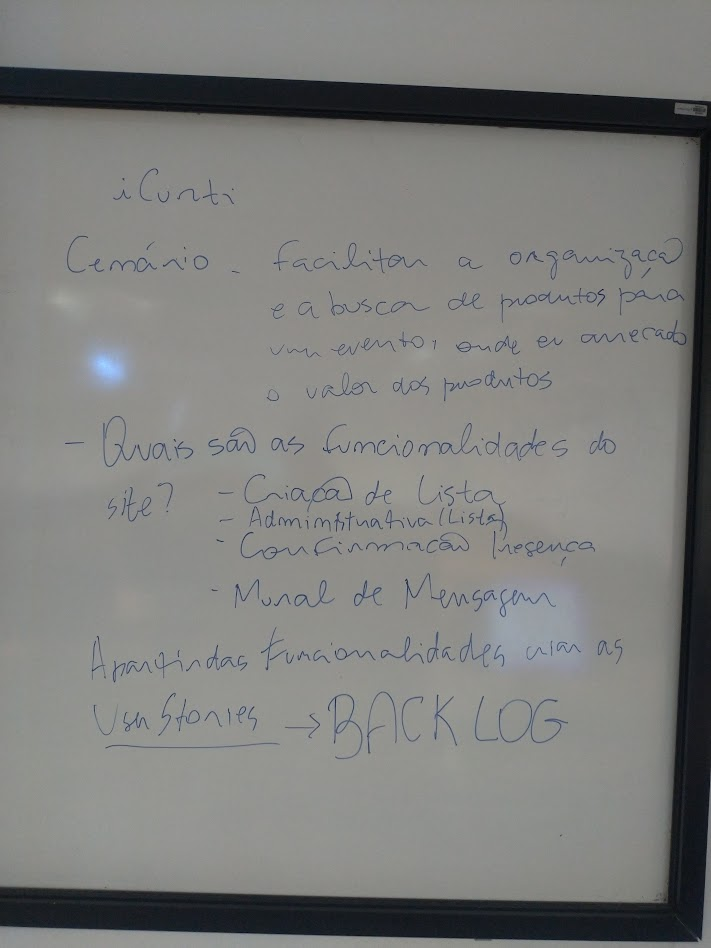 iCurti
Cenário - facilitar a organização
e a busca de produtos para
um evento, onde eu arrecado
o valor dos produtos
- Quais são as funcionalidades do
site? - Criação de Lista
- Administrativa (Lista)
- Confirmação Presença
- Mural de Mensagem
Apartir das funcionalidades criar as
User Stories → BACKLOG